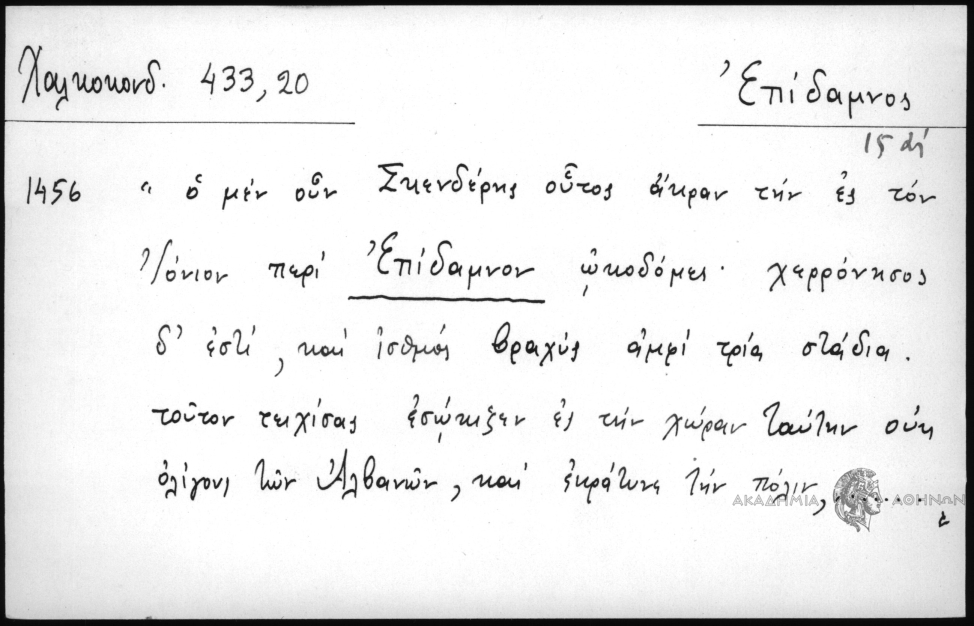 Χαλκοκονδ. 433,20
Ἐπίδαμνος
15 αἰ
1456 " ὁ μέν οὖν Σκενδέρης οὗτος ἄκραν τήν ἐς τόν
Ἰόνιον περί Ἐπίδαμνον ᾠκοδόμει· χερρόνησος
δ' ἐστί, καί ἰσθμός βραχύς ἀμφί τρία στάδια.
τοῦτον τειχίσας ἐσῴκιζεν ἐς τήν χώραν ταύτην οὐκ
ὀλίγους τῶν Ἀλβανῶν, καί ἐκράτυνε τήν πόλιν, ........
ΑΚΑΔΗΜΙΑ ΑΘΗΝΩΝ